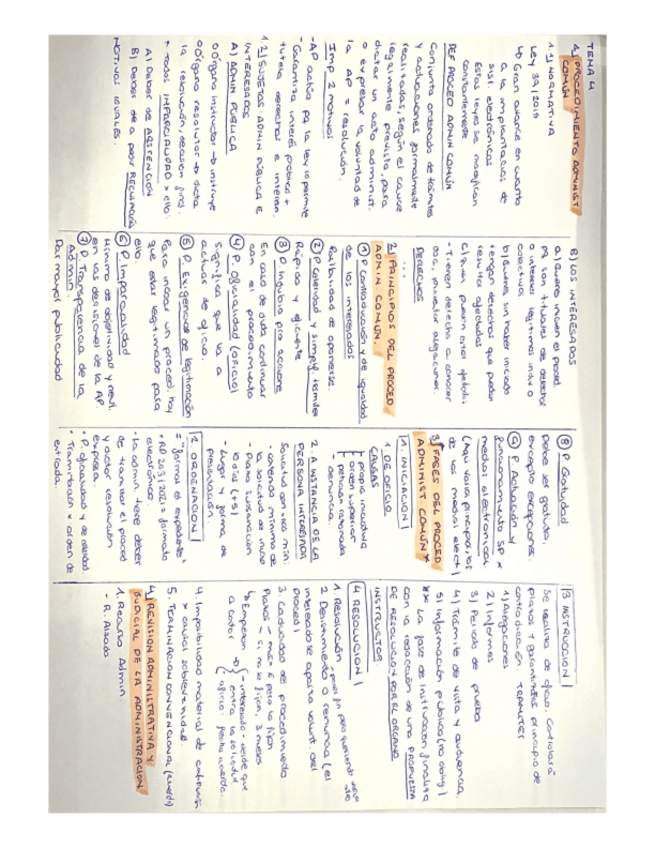 TEMA 4
1) PROCEDIMIENTO ADMINIST
COMÚN
1.1) NORMATIVA
LEY 39/2015
↳ Gran avance en cuanto
a la implantación de
sist electrónicos
Estas leyes se modifican
constantemente
DEF PROCED ADMIN COMÚN
Conjunto ordenado de trámites
y actuaciones formalmente
realizadas, según el cauce
legalmente previsto, para
dictar un acto administ.
o expresar la voluntad de
la AP = resolución.
Imp 2 motivos
- AP actúa pq la ley lo permite
- Garantiza interés público +
tutela derechos e interés.
1.2) SUJETOS ADMIN PÚBLICA E
INTERESADOS
A) ADMIN PÚBLICA
o Órgano instructor → instruye
o Órgano resolutor → dicta
la resolución, decisión final.
* Todos IMPARCIALIDAD x ello:
A) Deber de ABSTENCIÓN
B) Deber de a poder RECUSACIÓN
MOTIVOS IGUALES.
B) LOS INTERESADOS
a) quienes inicien el proced.
pq son titulares de derechos
o intereses legítimos indiv o
colectivos
b) quienes sin haber iniciado
tengan derechos que puedan
resultar afectados
- Tienen derecho a conocer
DERECHOS
...
2) PRINCIPIOS DEL PROCED
ADMIN COMÚN.
① P. contradicción y de igualdad
de los interesados
Posibilidad de oponerse.
② P. Celeridad y simplif. trámites
Rápidos y eficiente
③ P. In dubio pro actione
En caso de duda continuar
con el procedimiento
④ P. Oficialidad (oficio)
Significa que va a
actuar de oficio.
⑤ P. Exigencia de legitimación
Para iniciar un proced. hay
que estar legitimado para
ello.
⑥ P. Imparcialidad
Mínimo de objetividad y neut.
en las decisiones de la AP.
⑦ P. Transparencia de la
Admin.
Dar mayor publicidad
⑧ P. Gratuidad
Debe ser gratuito,
excepto excepciones.
⑨ P. Actuación y
funcionamiento SP x
medios electrónicos
(Aquí varios principios, los
de los medios elect)
3) FASES DEL PROCED
ADMINIST COMÚN *
1. INICIACIÓN
1. DE OFICIO.
CAUSAS
- propia iniciativa
- orden superior
- petición razonada
- denuncia.
2. A INSTANCIA DE LA
PERSONA INTERESADA
Solicitud con unos mín:
- Contenido mínimo de
la solicitud de inicio
- Plazo subsanación
10 días (+5)
- Lugar y forma de
presentación
2. ORDENACIÓN
= "formar el expediente"
- RD 203/2021 = formato
electrónico.
- La admin tiene deber
de tramitar el proced
y dictar resolución
expresa.
• P. oficialidad y de celeridad
• Tramitación x orden de
entrada.
3 INSTRUCCIÓN
Se realiza de oficio. Controlará
plazos y garantías principio de
contradicción. TRÁMITES
1) Alegaciones
2) Informes
3) Período de prueba
4) Trámite de vista y audiencia.
5) Información pública (no oblig)
** La fase de instrucción finaliza
con la redacción de una PROPUESTA
DE RESOLUCIÓN POR EL ÓRGANO
INSTRUCTOR
4 RESOLUCIÓN
1. Resolución
2 Desistimiento o renuncia (el
interesado se aparta volunt. del
proced)
3. Caducidad del procedimiento
Plazos - máx 6 pero lo fijan
- si no se fijan, 3 meses.
↳ Empiezan → - interesado: desde que
a contar entra la solicitud
- oficio: fecha acuerdo.
4. Imposibilidad material de continuar
x causas sobrevenidas.
5. TERMINACIÓN CONVENCIONAL (acuerdo)
4) REVISIÓN ADMINISTRATIVA Y
JUDICIAL DE LA ADMINISTRACIÓN
1. Recurso Admin.
- R. Alzada